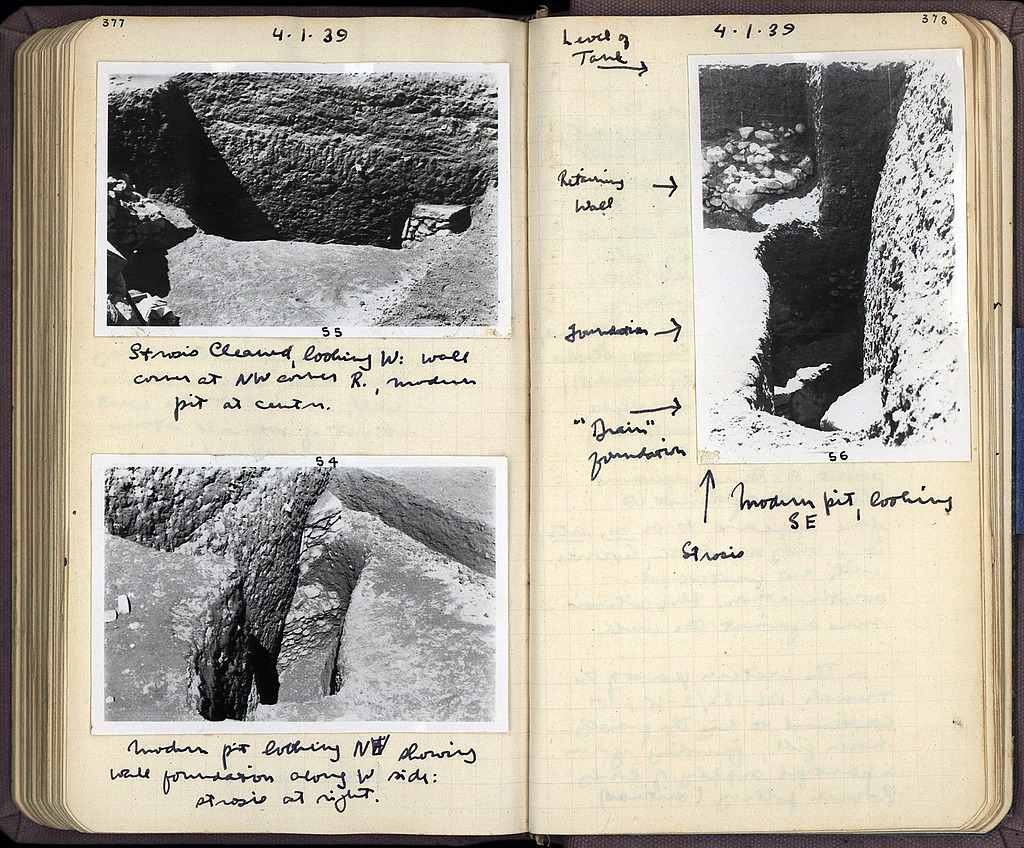 377
4.1.39
55
Strosis Cleaned, looking W: wall
corner at NW corner R., modern
pit at center.
54
Modern pit looking NW showing
wall foundation along W side:
strosis at right.
378
4.1.39
Level of
Tank
Retaining
Wall
Foundation
"Drain"
foundation
56
Modern pit, looking
SE
Strosis